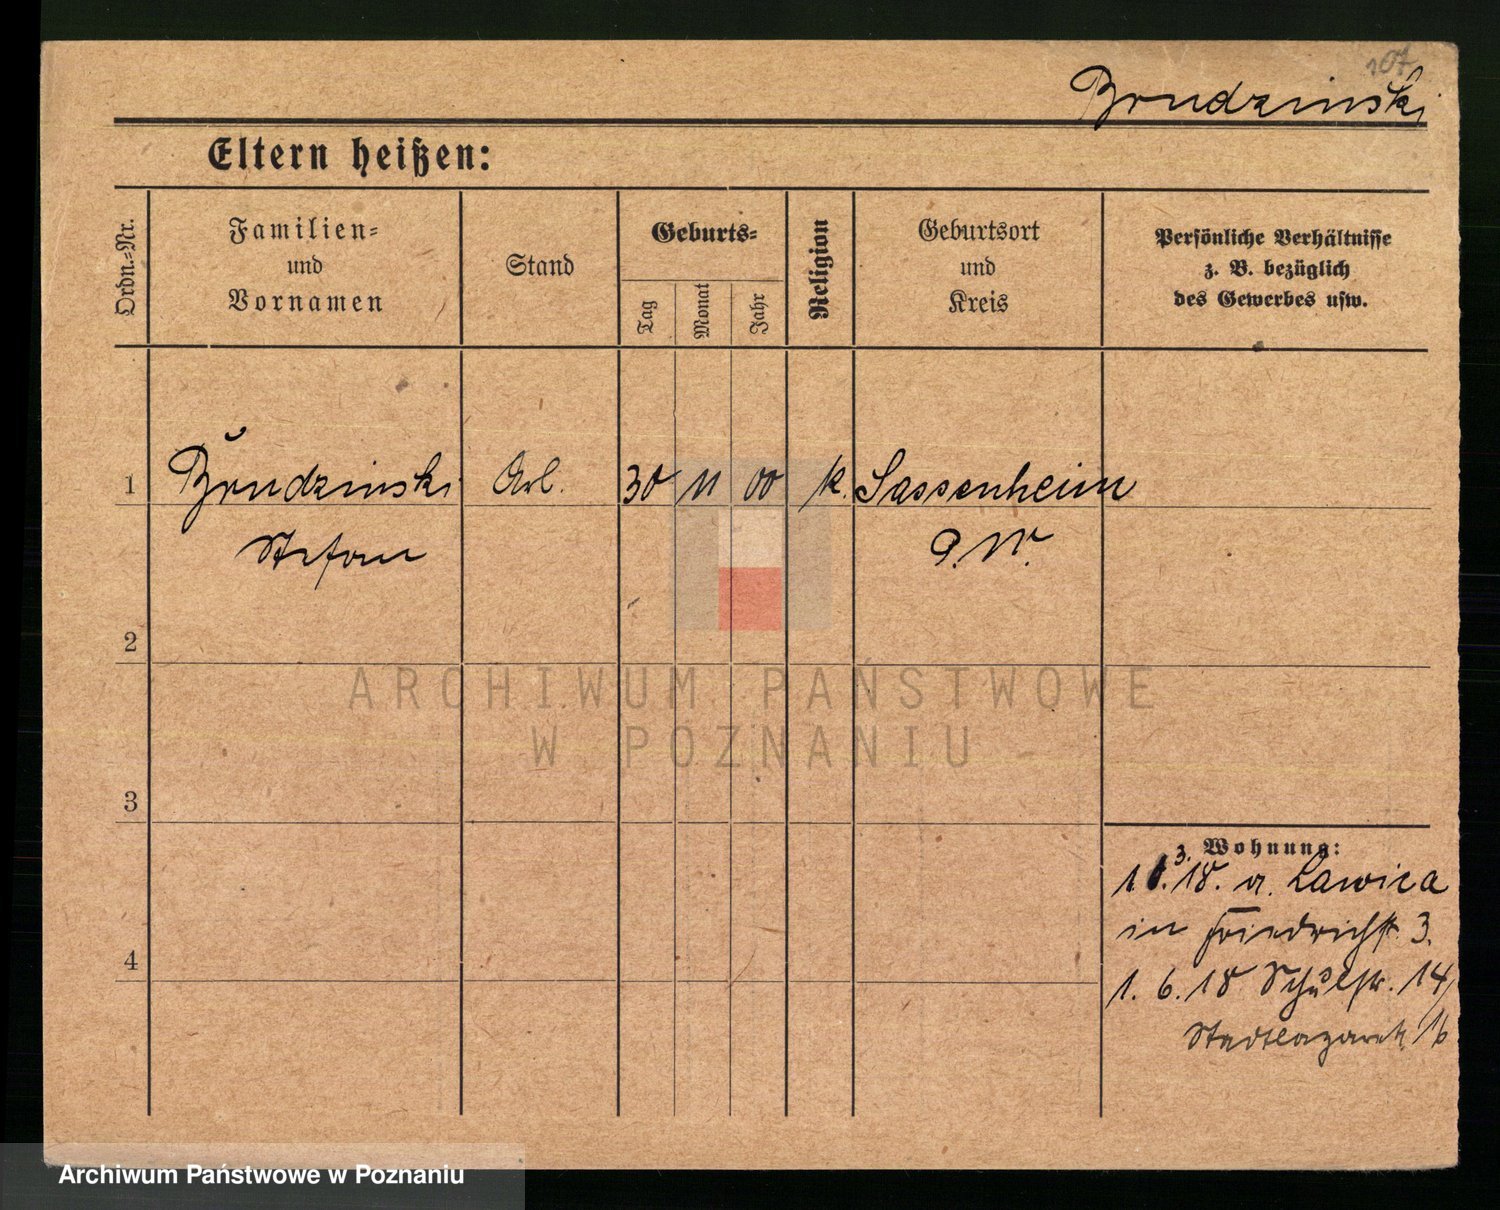 107
Brudzinski
Eltern heißen:
Ordn.-Nr.
Familien-
und
Vornamen
Stand
Geburts-
Tag
Monat
Jahr
Religion
Geburtsort
und
Kreis
Persönliche Verhältnisse
z. B. bezüglich
des Gewerbes usw.
1 Brudzinski Arb. 30 11 00 k. Sassenheim
Stefan P. W.
2
3
4
Wohnung:
3. 18. a. Lawica
in Friedrichstr. 3.
1. 6. 18 Schulstr. 14/
Stadtlazarett 16
ARCHIWUM PAŃSTWOWE
W POZNANIU
Archiwum Państwowe w Poznaniu